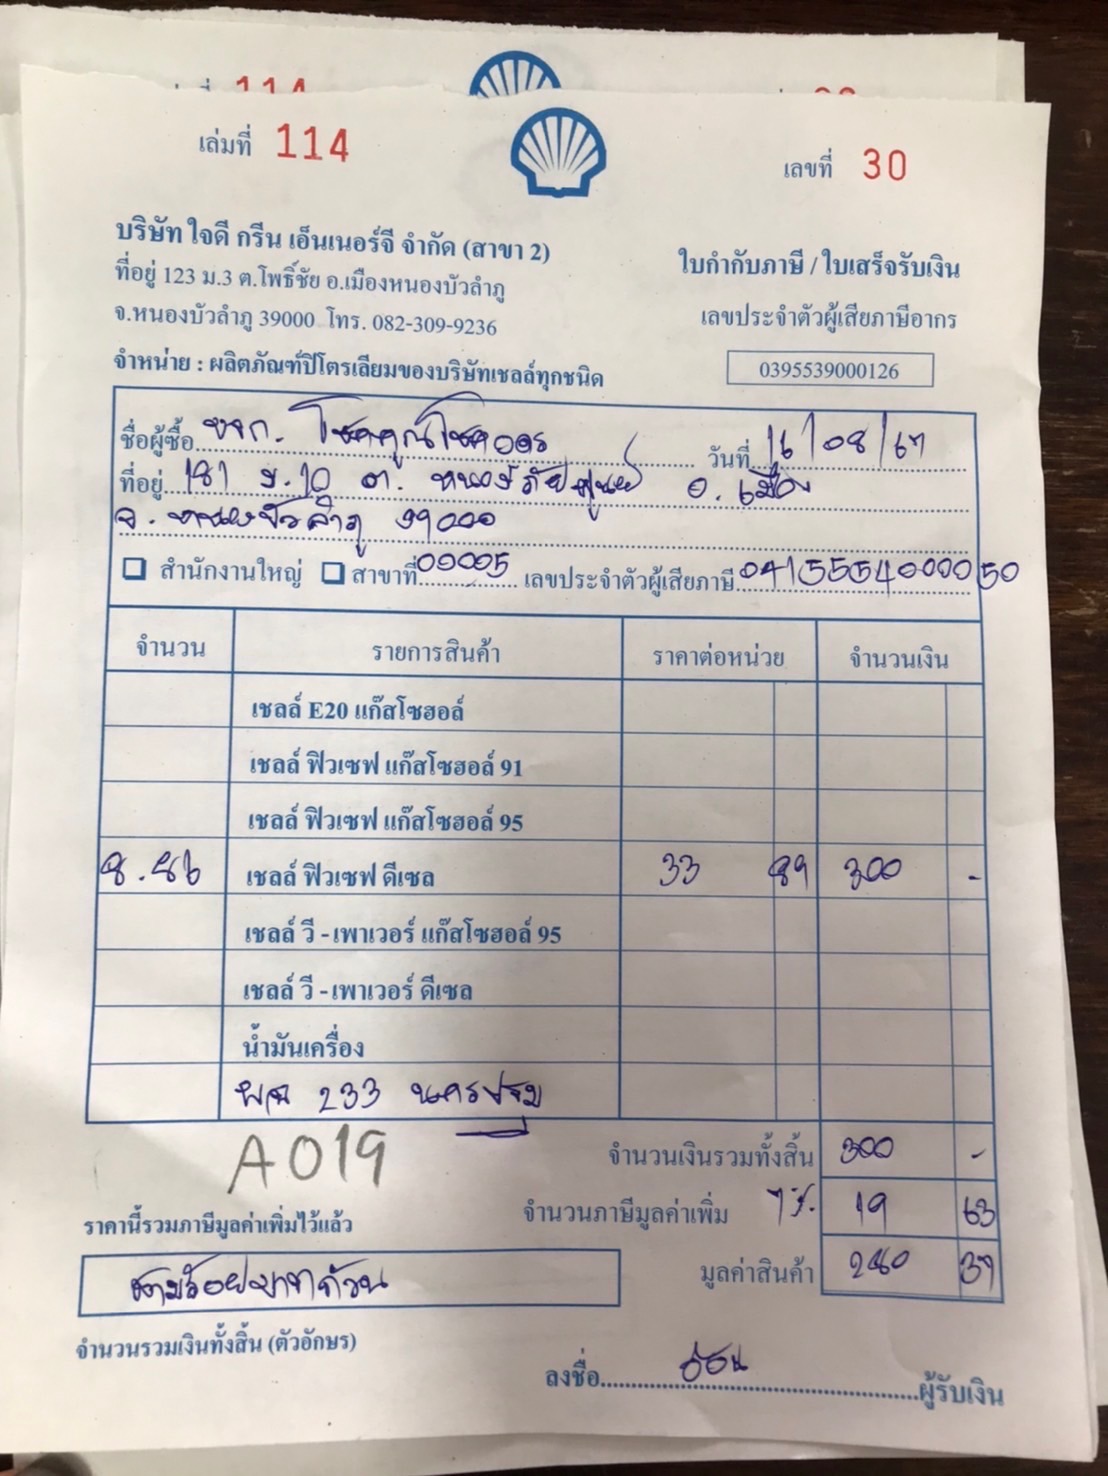 เล่มที่ 114
เลขที่ 30
บริษัท ใจดี กรีน เอ็นเนอร์จี จำกัด (สาขา 2)
ที่อยู่ 123 ม.3 ต.โพธิ์ชัย อ.เมืองหนองบัวลำภู
จ.หนองบัวลำภู 39000 โทร. 082-309-9236
จำหน่าย : ผลิตภัณฑ์ปิโตรเลียมของบริษัทเชลล์ทุกชนิด
ใบกำกับภาษี / ใบเสร็จรับเงิน
เลขประจำตัวผู้เสียภาษีอากร
0395539000126
ชื่อผู้ซื้อ หจก. โชคคูณโชค วันที่ 16/08/67
ที่อยู่ 181 ม.10 ต. อ.เมือง
จ. หนองบัวลำภู 39000
สำนักงานใหญ่ สาขาที่ 00005 เลขประจำตัวผู้เสียภาษี 0415554000050
จำนวน รายการสินค้า ราคาต่อหน่วย จำนวนเงิน
เชลล์ E20 แก๊สโซฮอล์
เชลล์ ฟิวเซฟ แก๊สโซฮอล์ 91
เชลล์ ฟิวเซฟ แก๊สโซฮอล์ 95
8.86 เชลล์ ฟิวเซฟ ดีเซล 33 89 300 -
เชลล์ วี - เพาเวอร์ แก๊สโซฮอล์ 95
เชลล์ วี - เพาเวอร์ ดีเซล
น้ำมันเครื่อง
233 นครปฐม
A019
จำนวนเงินรวมทั้งสิ้น 300 -
จำนวนภาษีมูลค่าเพิ่ม 7% 19 63
ราคานี้รวมภาษีมูลค่าเพิ่มไว้แล้ว
มูลค่าสินค้า 280 37
สามร้อยบาทถ้วน
จำนวนรวมเงินทั้งสิ้น (ตัวอักษร)
ลงชื่อ ผู้รับเงิน